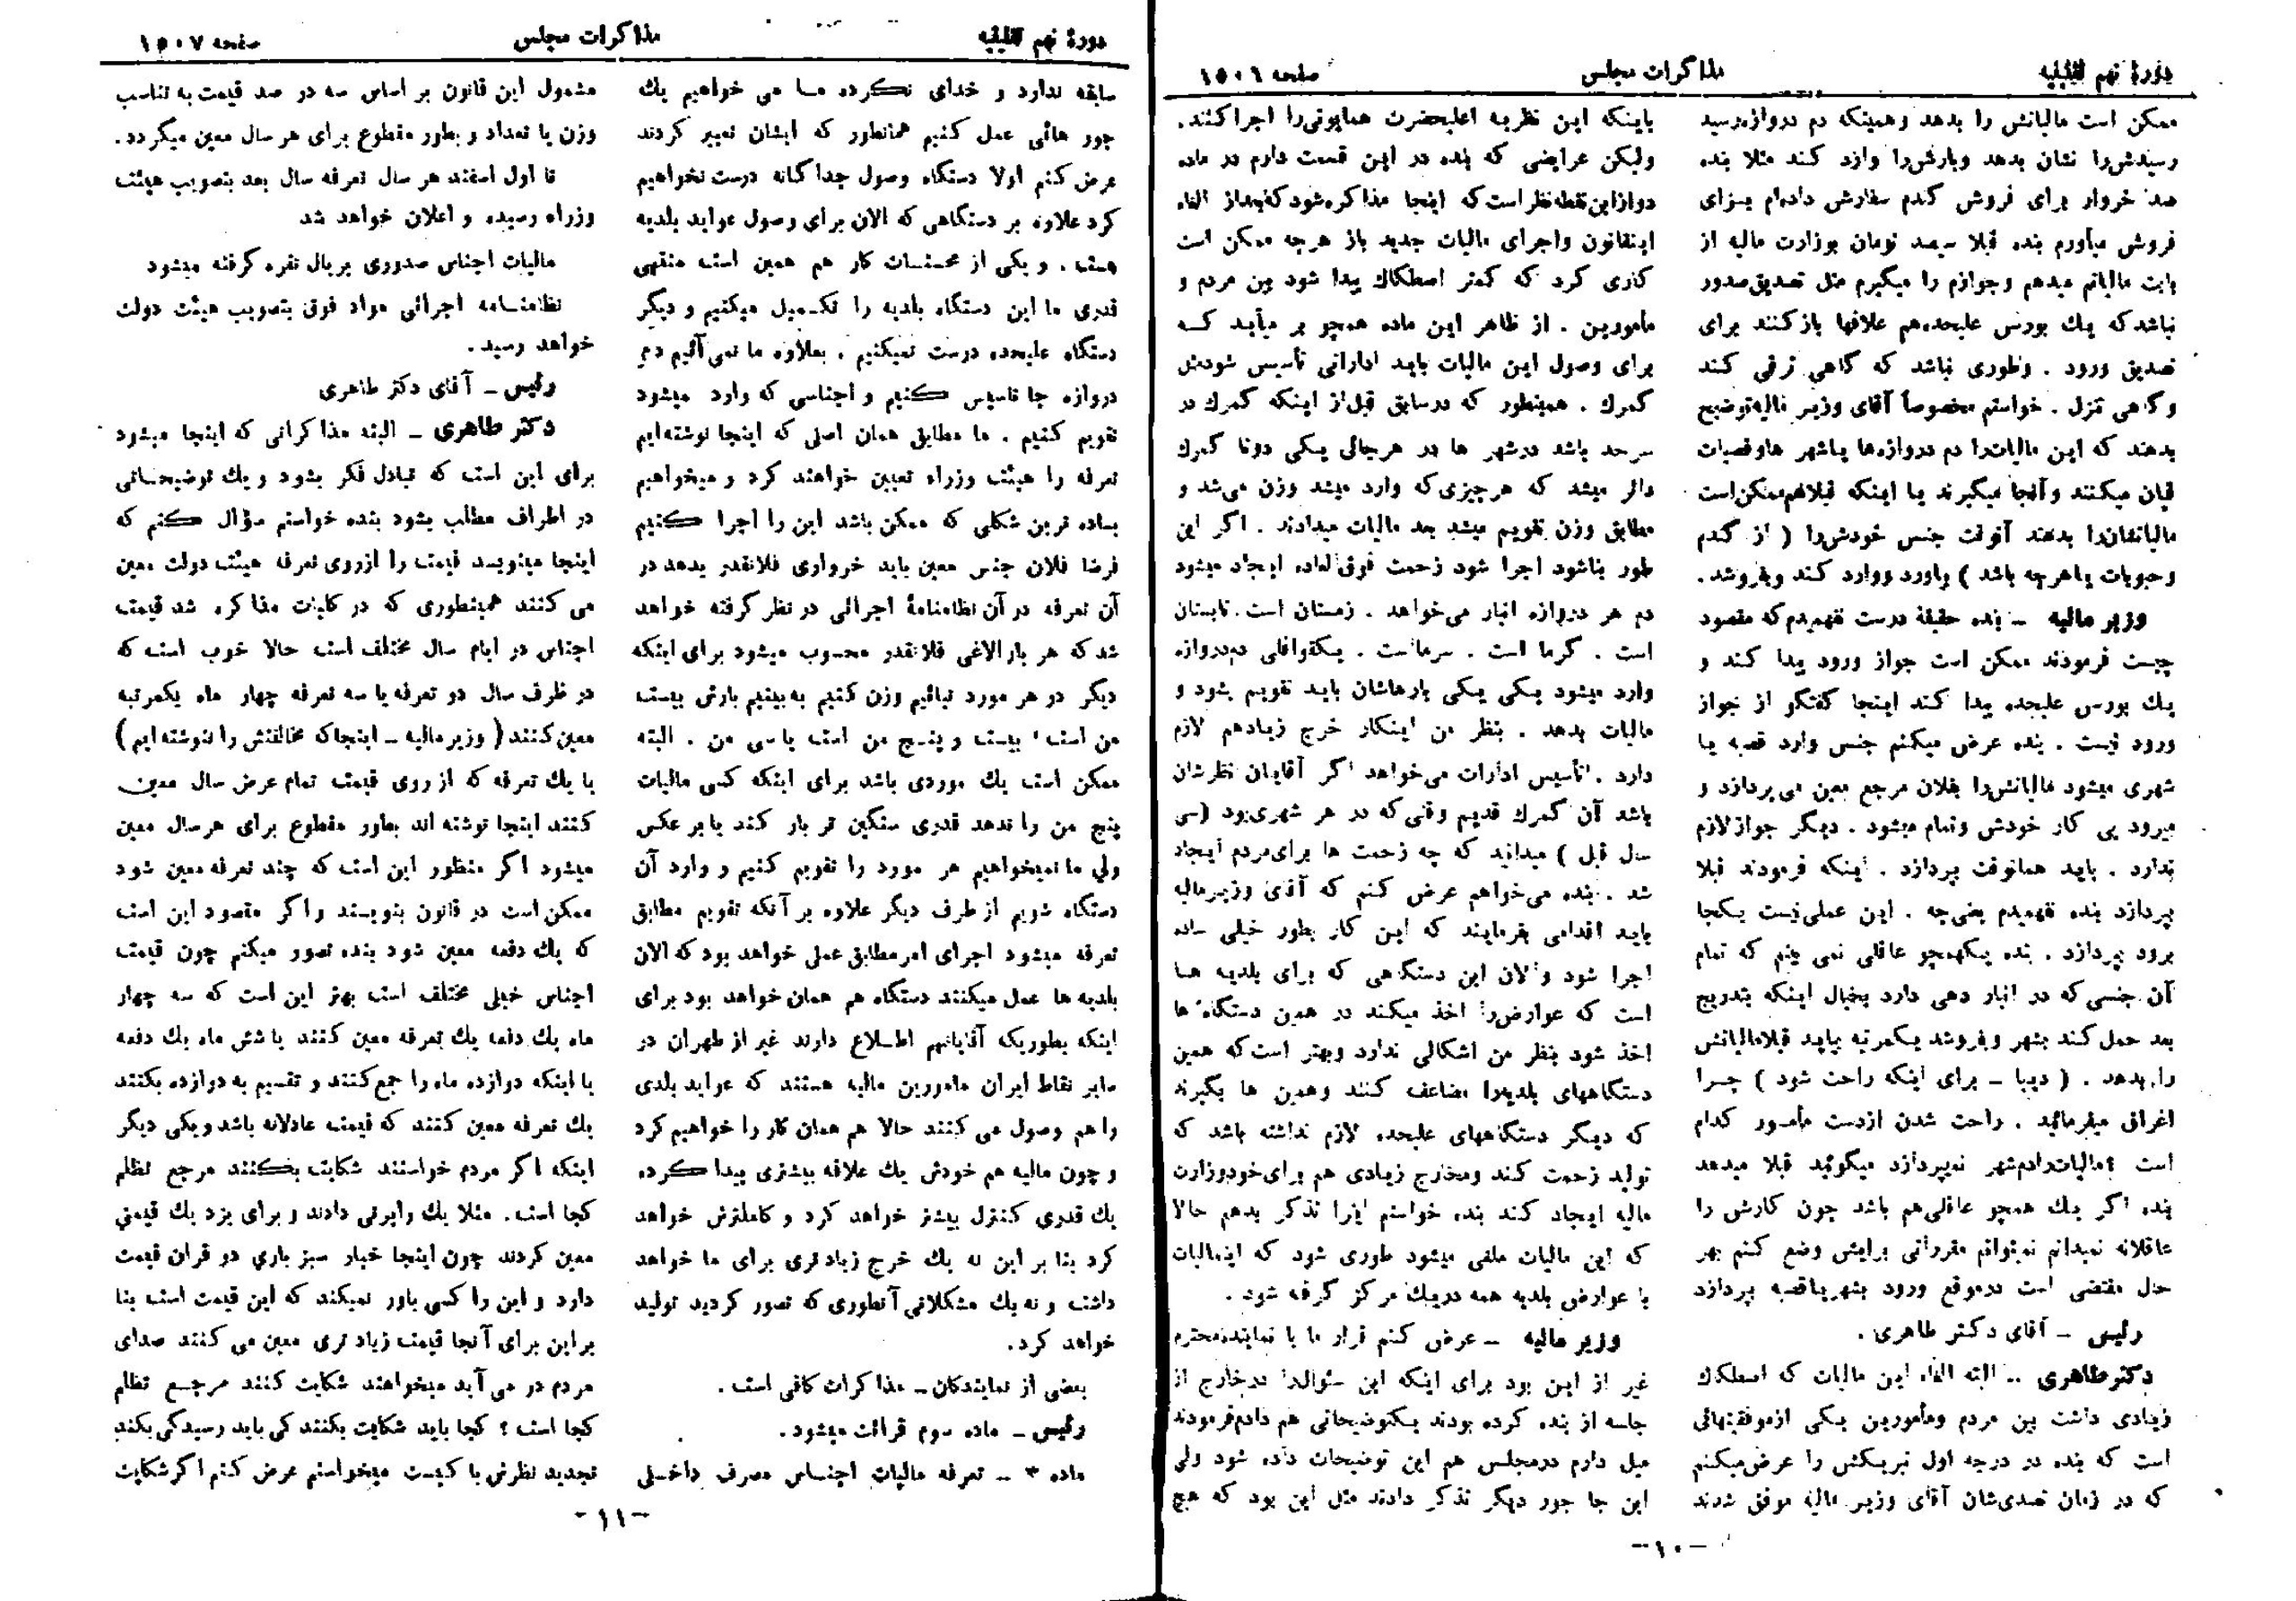 دورهٔ نهم تقنینیه
مذاکرات مجلس
صفحه ۱۵۰۶
ممکن است مالیاتش را بدهد وهمینکه دم دروازه‌رسید
رسیدش‌را نشان بدهد وبارش‌را وارد کند مثلا بنده
صد خروار برای فروش گندم سفارش داده‌ام بـرای
فروش میآورم بنده قبلا سیصد تومان بوزارت مالیه از
بابت مالیاتم میدهم وجوازم را میگیرم مثل تصدیق‌صدور
نباشدکه یك بورس علیحده‌هم علافها بازکنند برای
تصدیق ورود . وطوری نباشد که گاهی ترقی کند
وگاهی تنزل . خواستم مخصوصاً آقای وزیر مالیه‌توضیح
بدهند که این مالیات‌را دم دروازه‌ها یاشهر هاوقصبات
قپان میکنند وآنجا میگیرند یـا اینکه قبلاهم‌ممکن‌است
مالیاتشان‌را بدهند آنوقت جنس خودش‌را ( از گندم
وحبوبات یاهرچه باشد ) بیاورد ووارد کند وبفروشد.
وزیر مالیه ـ بنده حقیقة درست نفهمیدم‌که مقصود
چیست فرمودند ممکن است جواز ورود پیدا کند و
یك بورس علیحده پیدا کند اینجا گفتگو از جواز
ورود نیست . بنده عرض میکنم جنس وارد قصبه یـا
شهری میشود مالیاتش‌را بفلان مرجع معین می‌پردازد و
میرود پی کار خودش وتمام میشود . دیگر جوازلازم
ندارد . باید همانوقت بپردازد . اینکه فرمودند قبلا
بپردازد بنده نفهمیدم یعنی‌چه . این عملی‌نیست یکجا
برود بپردازد . بنده یکهمچو عاقلی نمی بینم که تمام
آن جنسی‌که در انبار دهی دارد بخیال اینکه بتدریج
بعد حمل کند بشهر وبفروشد یکمرتبه بیاید قبلامالیاتش
را بدهد . ( دیبا ـ برای اینکه راحت شود ) چـرا
اغراق میفرمائید . راحت شدن ازدست مأمـور کدام
است ؟مالیات‌رادم‌شهر نمیپردازد میگوئید قبلا میدهد
بنده اگر یك همچو عاقلی‌هم باشد چون کارش را
عاقلانه نمیدانم نمیتوانم مقرراتی برایش وضع کنم بهر
حال مقتضی است درموقع ورود بشهریاقصبه بپردازد
رئیس ـ آقای دکتر طاهری .
دکترطاهری ـ البته الغاء این مالیات که اصطکاك
زیادی داشت بین مردم ومأمورین یـکی ازموفقیتهائی
است که بنده در درجه اول تبریـکش را عرض‌میکنم
که در زمان تصدی‌شان آقای وزیـر مالیه موفق شدند
باینکه ایـن نظریه اعلیحضرت همایونی‌را اجراکنند.
ولیکن عرایضی که بنده در این قسمت دارم در ماده
دوازاین‌نقطه‌نظراست‌که اینجا مذاکره‌شودکه‌بعداز الغاء
اینقانون واجرای مالیات جدید باز هرچه ممکن است
کاری کرد که کمتر اصطکاك پیدا شود بین مردم و
مأمورین . از ظاهر این ماده همچو بر میآیـد کـه
برای وصول این مالیات بایـد اداراتی تأسیس شودمثل
گمرك . همینطور که درسابق قبل‌از اینکه گمرك در
سرحد باشد درشهر ها در هرجائی یـکی دوتا گمرك
دائر میشد که هرچیزی‌که وارد میشد وزن می‌شد و
مطابق وزن تقویم میشد بعد مالیات میدادند . اگر این
طور بناشود اجرا شود زحمت فوق‌العاده ایـجاد میشود
دم هر دروازه انبار می‌خواهد . زمستان است.تابستان
است . گرما است . سرماست . یـکقوافلی دم‌دروازه
وارد میشود یـکی یـکی بارهاشان بایـد تقویم بشود و
مالیات بدهد . بنظر من اینکار خرج زیادهم لازم
دارد . تأسیس ادارات می‌خواهد اگر آقایان نظرشان
باشد آن گمرك قدیم وقتی‌که در هر شهری‌بود (سی
سال قبل ) میدانید که چه زحمت ها برای‌مردم ایجاد
شد . بنده می‌خواهم عرض کـنم که آقای وزیـرمالیه
بایـد اقدامی بفرمایند که ایـن کار بطور خیلی ساده
اجرا شود والان این دستگاهی که برای بلدیـه هـا
است که عوارض‌را اخذ میکند در همین دستگاه ها
اخذ شود بنظر من اشکالی ندارد وبهتر است‌که همین
دستگاههای بلدیه‌را مضاعف کـنند وهمین ها بگیرند
که دیـگر دستگاههای علیحده لازم نداشته باشد که
تولید زحمت کند ومخارج زیادی هم برای‌خودوزارت
مالیه ایـجاد کـند بنده خواستم اینرا تذکر بدهم حالا
که این مالیات ملغی میشود طوری شود که این‌مالیات
با عوارض بلدیه همه دریـك مرکز گرفته شود .
وزیر مالیه ـ عرض کنم قرار ما با نماینده‌محترم
غیر از ایـن بود برای اینکه این سئوال‌را درخارج از
جلسه از بنده کرده بودند یـکتوضیحاتی هم دادم‌فرمودند
میل دارم درمجلس هم این توضیحات داده شود ولی
این جا جور دیـگر تذکر دادند مثل این بود که هیچ
ـ ۱۰ ـ
دورهٔ نهم تقنینیه
مذاکرات مجلس
صفحه ۱۵۰۷
سابقه ندارد و خدای نکرده مـا می خواهیم یك
جور هائی عمل کنیم همانطور که ایشان تعبیر کردند
عرض کنم اولا دستگاه وصول جداگانه درست نخواهیم
کرد علاوه بر دستگاهی که الان برای وصول عواید بلدیه
هست . و یکی از محسنات کار هم همین است منتهی
قدری ما این دستگاه بلدیه را تکـمیل میکنیم و دیگر
دستگاه علیحده درست نمیکنیم . بعلاوه ما نمی آئیم دم
دروازه جا تاسیس کنیم و اجناسی که وارد میشود
تقویم کنیم . ما مطابق همان اصلی که اینجا نوشته‌ایم
تعرفه را هیئت وزراء تعیین خواهند کرد و میخواهیم
بساده ترین شکلی که ممکن باشد این را اجرا کنیم
فرضا فلان جنس معین باید خرواری فلانقدر بدهد در
آن تعرفه در آن نظامنامهٔ اجرائی در نظر گرفته خواهد
شد که هر بار الاغی فلانقدر محسوب میشود برای اینکه
دیگر در هر مورد نیائیم وزن کنیم به‌بینیم بارش بیست
من است ، بیست و پنـج من است یا سی من . البته
ممکن است یك موردی باشد برای اینکه کسی مالیات
پنج من را ندهد قدری سنگین تر بار کند یا بر عکس
ولی ما نمیخواهیم هر مورد را تقویم کنیم و وارد آن
دستگاه شویم از طرف دیگر علاوه بر آنکه تقویم مطابق
تعرفه میشود اجرای امر مطابق عملی خواهد بود که الان
بلدیه ها عمل میکنند دستگاه هم همان خواهد بود برای
اینکه بطوریکه آقایانهم اطـلاع دارند غیر از طهران در
سایر نقاط ایران مامورین مالیه هستند که عواید بلدی
را هم وصول می کنند حالا هم همان کار را خواهیم کرد
و چون مالیه هم خودش یك علاقه بیشتری پیدا کرده
یك قدری کنترل بیشتر خواهد کرد و کاملترش خواهد
کرد بنا بر این نه یك خرج زیادتری برای ما خواهد
داشت و نه یك مشکلاتی آنطوری که تصور کردید تولید
خواهد کرد.
بعضی از نمایندگان ـ مذاکرات کافی است .
رئیس ـ ماده سوم قرائت میشود .
ماده ۳ ـ تعرفه مالیات اجناس مصرف داخـلی
مشمول این قانون بر اساس سه در صد قیمت به تناسب
وزن یا تعداد و بطور مقطوع برای هر سال معین میگردد.
تا اول اسفند هر سال تعرفه سال بعد بتصویب هیئت
وزراء رسیده و اعلان خواهد شد
مالیات اجناس صدوری بریال نقره گرفته میشود
نظامنـامه اجرائی مواد فوق بتصویب هیئت دولت
خواهد رسید .
رئیس ـ آقای دکتر طاهری
دکتر طاهری ـ البته مذاکراتی که اینجا میشود
برای این است که تبادل فکر بشود و یك توضیحـاتی
در اطراف مطلب بشود بنده خواستم سؤال کنم که
اینجا مینویسد قیمت را ازروی تعرفه هیئت دولت معین
می کنند همینطوری که در کلیات مذاکره شد قیمت
اجناس در ایام سال مختلف است حالا خوب است که
در ظرف سال دو تعرفه یا سه تعرفه چهار ماه یکمرتبه
معین‌کنند ( وزیر مالیه ـ اینجاکه مخالفتش را ننوشته ایم )
یا یك تعرفه که از روی قیمت تمام عرض سال معین
کنند اینجا نوشته اند بطور مقطوع برای هرسال معین
میشود اگر منظور این است که چند تعرفه معین شود
ممکن است در قانون بنویسند واگر مقصود این است
که یك دفعه معین شود بنده تصور میکنم چون قیمت
اجناس خیلی مختلف است بهتر این است که سه چهار
ماه یك دفعه یك تعرفه معین کنند یا شش ماه یك دفعه
یا اینکه دوازده ماه را جمع کنند و تقسیم به دوازده بکنند
یك تعرفه معین کنند که قیمت عادلانه باشد و یکی دیگر
اینکه اگر مردم خواستند شکایت بکنند مرجع تظلم
کجا است. مثلا یك راپرتی دادند و برای یزد یك قیمتی
معین کردند چون اینجا خیار سبز باری دو قران قیمت
دارد و این را کسی باور نمیکند که این قیمت است بنا
براین برای آنجا قیمت زیاد تری معین می کنند صدای
مردم در می آید میخواهند شکایت کنند مرجـع تظلم
کجا است ؟ کجا باید شکایت بکنند کی باید رسیدگی بکند
تجدید نظرش با کیست میخواستم عرض کنم اگر شکایت
ـ ۱۱ ـ